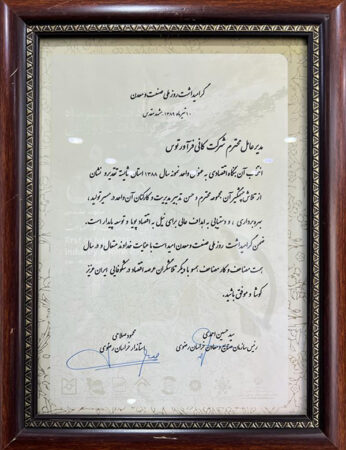 گرامیداشت روز ملی صنعت و معدن
۱۰ تیرماه ۱۳۸۹ـ مشهد مقدس
مدیرعامل محترم شرکت کانی فرآور توس
انتخاب آن بنگاه اقتصادی به عنوان واحد نمونه سال ۱۳۸۸ استان شایسته تقدیر و نشان
از تلاش پیگیر آن مجموعه محترم و حسن تدبیر مدیریت و کارکنان آن واحد در مسیر تولید،
بهره‌برداری، و دستیابی به اهداف عالی برای نیل به اقتصاد پویا و توسعه پایدار است.
ضمن گرامیداشت روز ملی صنعت و معدن امید است با عنایت خداوند متعال و در سال
همت مضاعف و کار مضاعف همسو با دیگر تلاشگران عرصه اقتصاد در شکوفایی ایران عزیز
کوشا و موفق باشید.
سید حسین احمدی
رئیس سازمان صنایع و معادن خراسان رضوی
محمود صلاحی
استاندار خراسان رضوی